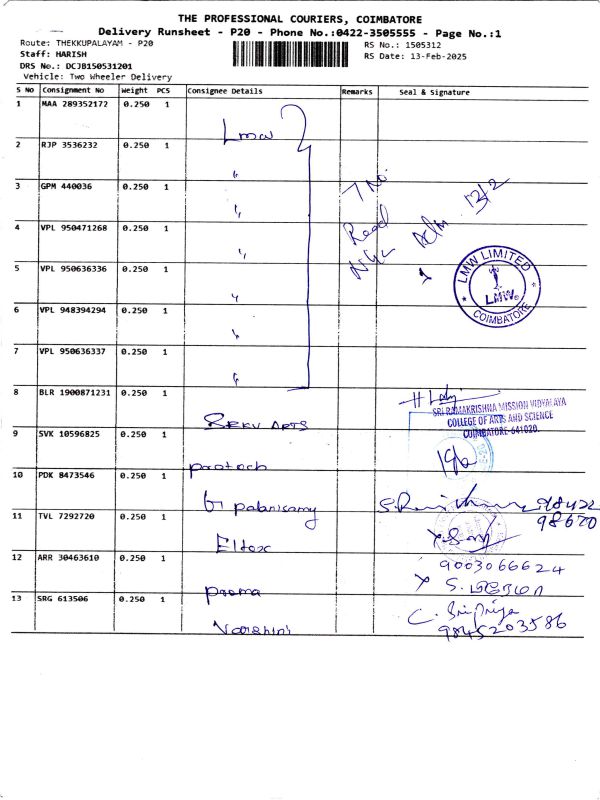 THE PROFESSIONAL COURIERS, COIMBATORE
Delivery Runsheet - P20 - Phone No.:0422-3505555 - Page No.:1
Route: THEKKUPALAYAM - P20
RS No.: 1505312
Staff: HARISH
RS Date: 13-Feb-2025
DRS No.: DCJB150531201
Vehicle: Two Wheeler Delivery
S No Consignment No Weight PCS Consignee Details Remarks Seal & Signature
1 MAA 289352172 0.250 1
Lmw
2 RJP 3536232 0.250 1
"
3 GPM 440036 0.250 1
"
7 No
Read
13/2
4 VPL 950471268 0.250 1
"
5 VPL 950636336 0.250 1
"
LMW LIMITED
LMW
COIMBATORE
6 VPL 948394294 0.250 1
"
7 VPL 950636337 0.250 1
"
8 BLR 1900871231 0.250 1
SRKV ARTS
SRI RAMAKRISHNA MISSION VIDYALAYA
COLLEGE OF ARTS AND SCIENCE
COIMBATORE-641020.
9 SVK 10596825 0.250 1
protech
10 PDK 8473546 0.250 1
G palanisamy
98422
98670
11 TVL 7292720 0.250 1
Eltex
9003066624
12 ARR 30463610 0.250 1
prema
S.
13 SRG 613506 0.250 1
Varshini
C. Sripriya
9845203586